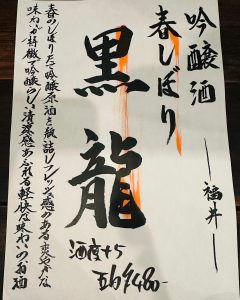 吟醸酒
春しぼり
福井
黒龍
酒度+5
春のしぼりたて吟醸原酒を瓶詰しフレッシュ感のある爽やかな
味わいが特徴で吟醸らしい清涼感あふれる軽快な味わいのお酒